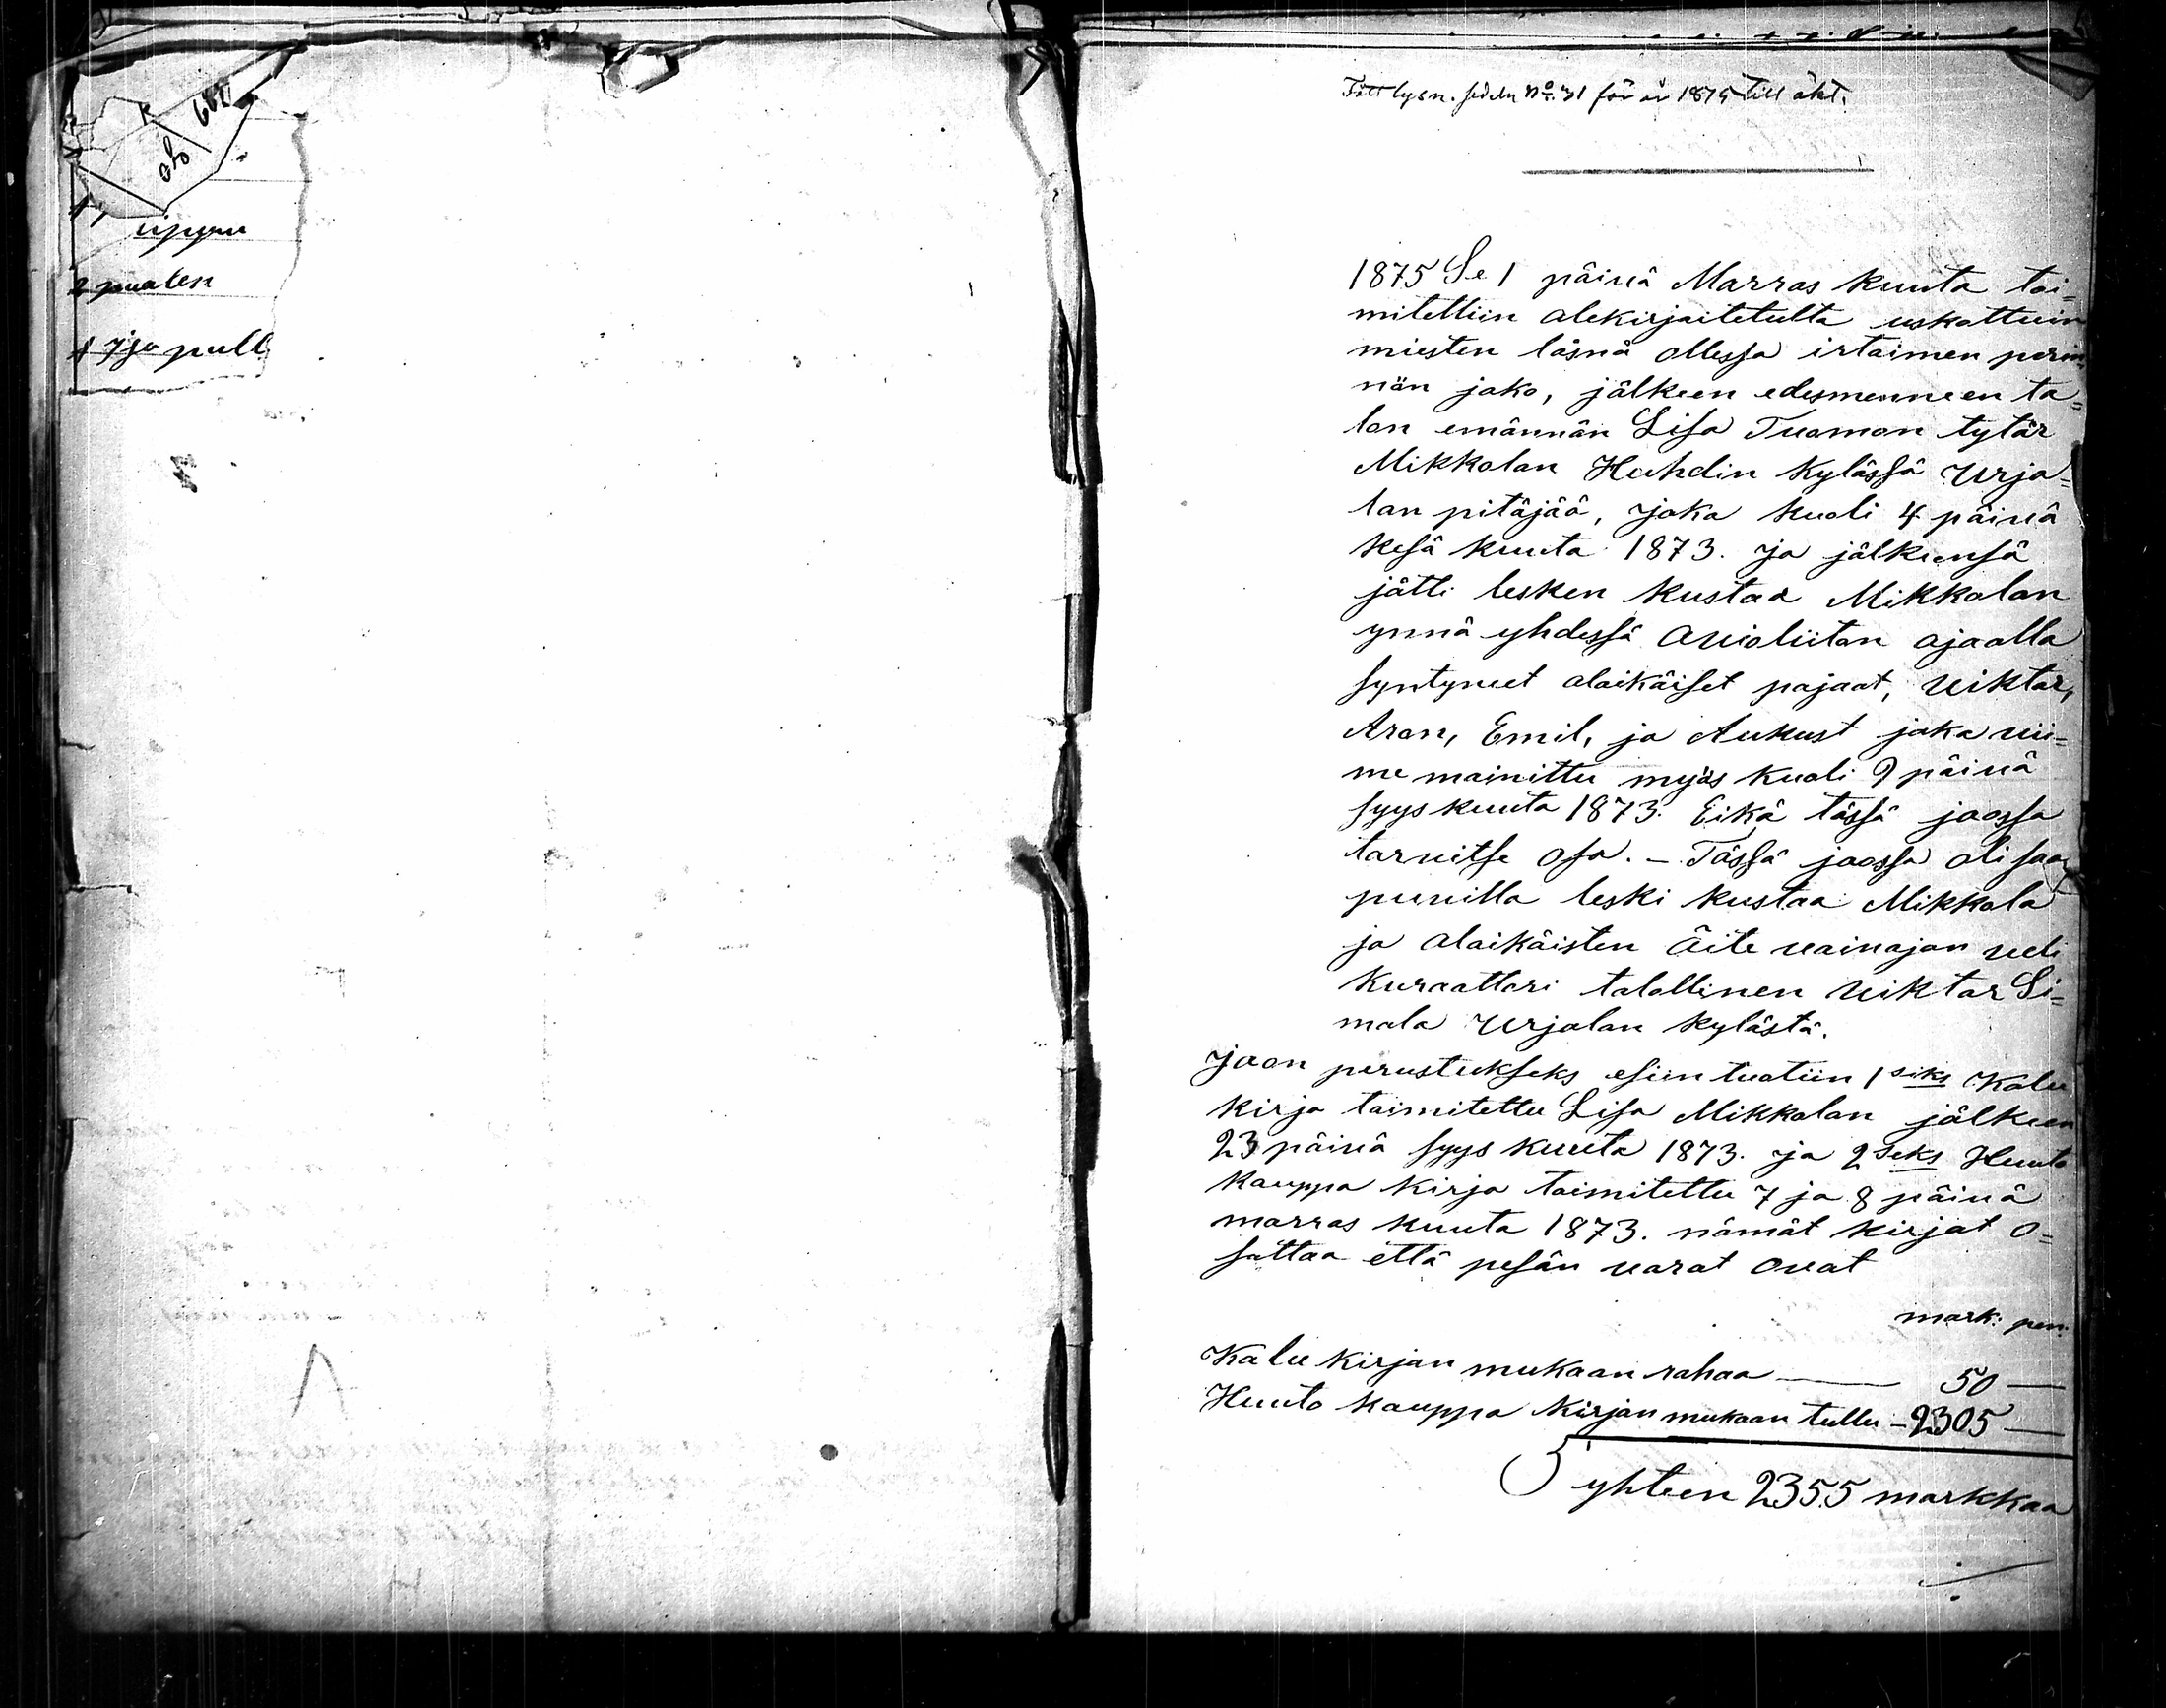 689
90
uppu
2 puolen
1 ja pull
för år 1875 till äkt.
1875 Se 1 päivä Marras kuuta toi=
mitettiin alekirjoitetulta uskottuin
miesten läsnä ollessa irtaimen perin=
nön jako, jälkeen edesmenneen ta=
lon emännän Lisa Tuomon tytär
Mikkolan Huhdin kylässä Urja=
lan pitäjää, joka kuoli 4 päivä
kesä kuuta 1873. ja jälkeensä
jätti lesken Kustaa Mikkolan
ynnä yhdessä avioliiton ajaalla
syntyneet alaikäiset pojaat, Viktor,
Aron, Emil, ja Aukust joka vii=
me mainittu myös kuoli 9 päivä
syys kuuta 1873. Eikä tässä jaossa
tarvitse osa. – Tässä jaossa oli saa
puvilla leski Kustaa Mikkola
ja alaikäisten Äite vainajan veli
Kuraattori talollinen Viktor Si=
mola Urjalan kylästä.
Jaon perustukseks esiin tuotiin 1siks Kalu
kirja toimitettu Lisa Mikkolan jälkeen
23 päivä syys kuuta 1873. ja 2seks Huuto
kauppa kirja toimitettu 7 ja 8 päivä
marras kuuta 1873. nämät kirjat o=
sottaa että pesän varat ovat
mark: pen:
Kalu kirjan mukaan rahaa — 50 —
Huuto kauppa kirjan mukaan tullu – 2305 —
S yhteen 2355 markkaa